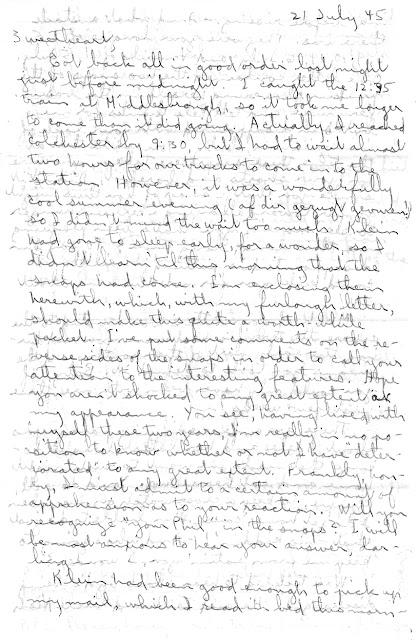 21 July 45
Sweetheart,
Got back all in good order last night
just before midnight. I caught the 12:35
train at Middlesbrough, so it took me longer
to come than it did going. Actually, I reached
Colchester by 9:30, but I had to wait almost
two hours for our trucks to come in to the
station. However, it was a wonderfully
cool summer evening (af dir gezugt gevoren!)
so I didn't mind the wait too much. Klein
had gone to sleep early, for a wonder, so I
didn't learn til this morning that the
snaps had come. I'm enclosing them
herewith, which, with my furlough letter,
should make this quite a worth-while
packet. I've put some comments on the re-
verse sides of the snaps in order to call your
attention to the interesting features. Hope
you aren't shocked to any great extent at
my appearance. You see, having lived with
myself these two years, I'm really in no po-
sition to know whether or not I have deter-
iorated to any great extent. Frankly, hon-
ey, I must admit to a certain amount of
apprehension as to your reaction. Will you
recognize "your Phil" in the snaps? I will
be most anxious to hear your answer, dar-
ling.
Klein had been good enough to pick up
my mail, which I read in bed this morn-